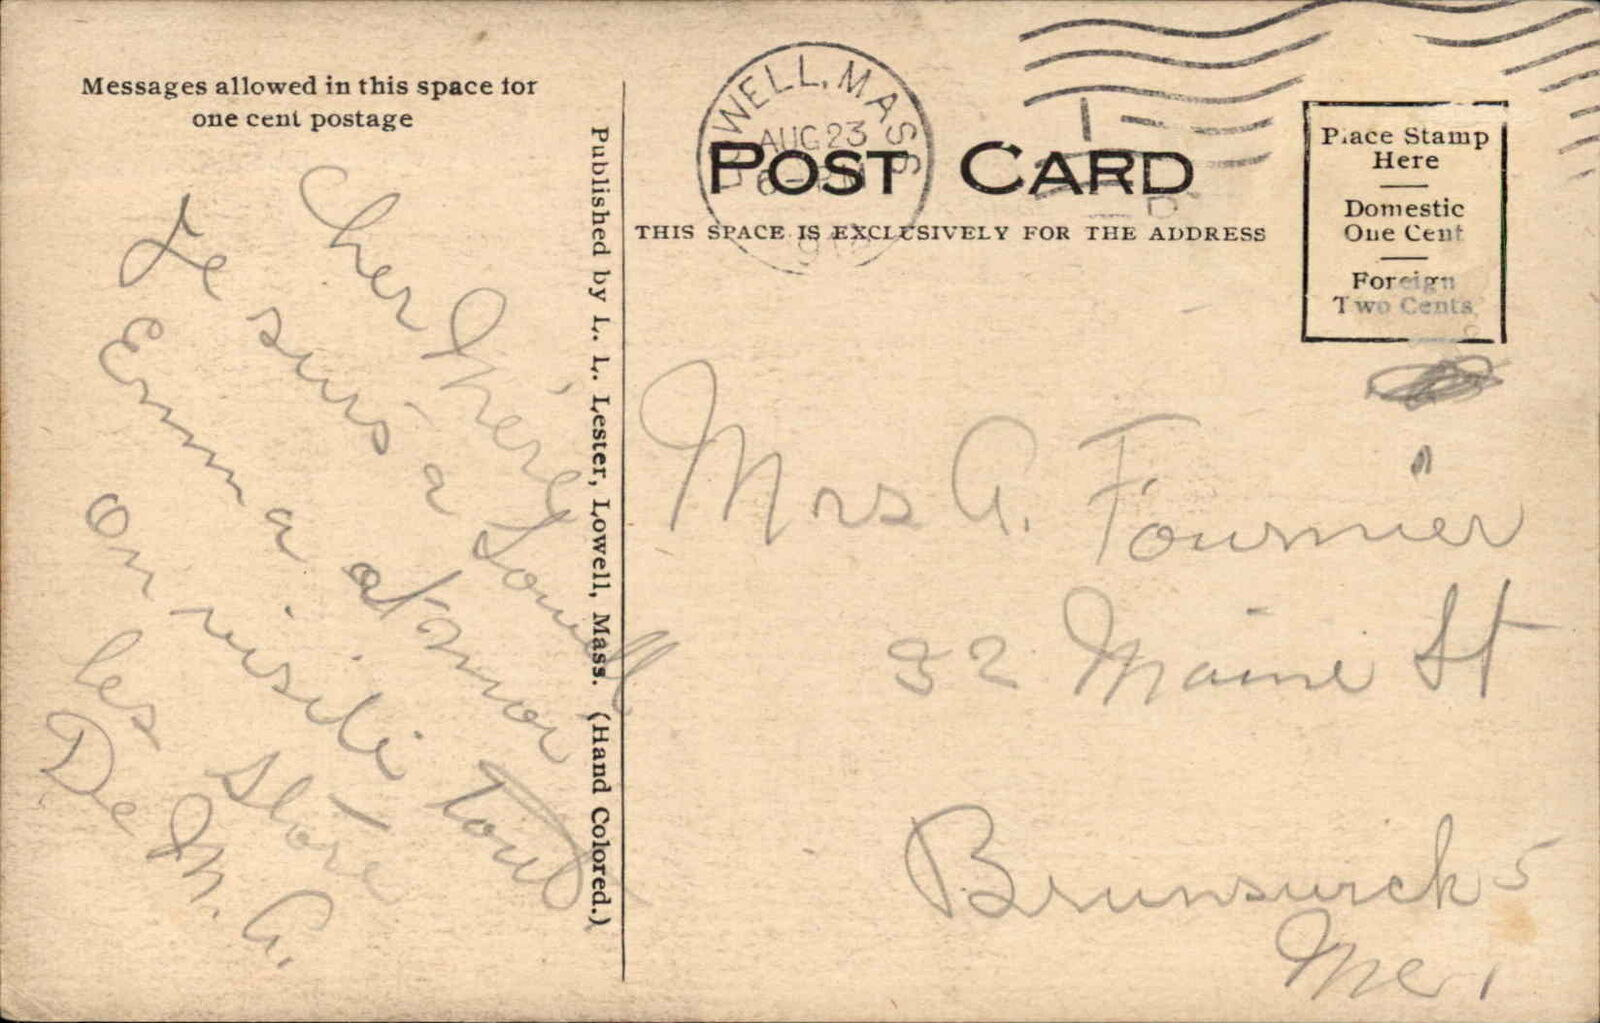 Messages allowed in this space for
one cent postage
Cher Mère
Je suis a Lowell
Emma at moi
on visiti tout
les store
De M. A.
Published by L. L. Lester, Lowell, Mass. (Hand Colored.)
LOWELL, MASS
AUG 23
POST CARD
THIS SPACE IS EXCLUSIVELY FOR THE ADDRESS
Place Stamp
Here
Domestic
One Cent
Foreign
Two Cents
Mrs A. Fournier
32 Maine St
Brunswick
Me.